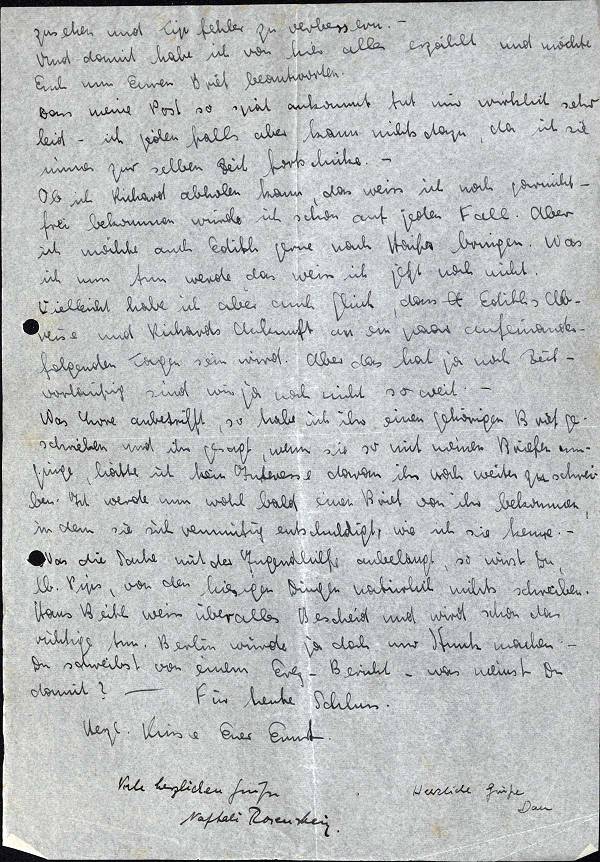 zusehen und Tip fehler zu verbessern. –
Und damit habe ich von hier alles erzählt und möchte
Euch nun Euren Brief beantworten.
Dass meine Post so spät ankommt tut mir wirklich sehr
leid – ich jeden falls aber kann nichts dazu, da ich sie
immer zur selben Zeit fortschicke. –
Ob ich Richard abholen kann, das weiss ich noch garnicht –
frei bekommen würde ich schon auf jeden Fall. Aber
ich möchte auch Edith gerne nach Haifa bringen. Was
ich nun tun werde, das weiss ich jetzt noch nicht.
Vielleicht habe ich aber auch Glück, dass Ediths Ab-
reise und Richards Ankunft an ein paar aufeinander-
folgenden Tagen sein wird. Aber das hat ja noch Zeit –
vorläufig sind wir ja noch nicht so weit. –
Was anbetrifft, so habe ich ihr einen gehörigen Brief ge-
schrieben und ihr gesagt, wenn sie so mit meinen Briefen um-
ginge, hätte ich kein Interesse daran ihr noch weiter zu schrei-
ben. Ich werde nun wohl bald einen Brief von ihr bekommen,
in dem sie sich entschuldigt, wie ich sie kenne. –
Was die Sache mit der Jugendhilfe anbelangt, so wirst Du,
lb. , von den hiesigen Dingen natürlich nichts schreiben.
Hans Beith weiss über alles Bescheid und wird schon das
richtige tun. Berlin würde ja doch nur machen. –
Du schreibst von einem Erez – Bericht – was meinst Du
damit? — Für heute Schluss.
Herzl. Küsse Euer Ernst.
Viele herzlichen Grüsse
Naftali Rosenstein.
Herzliche Grüße
Dan